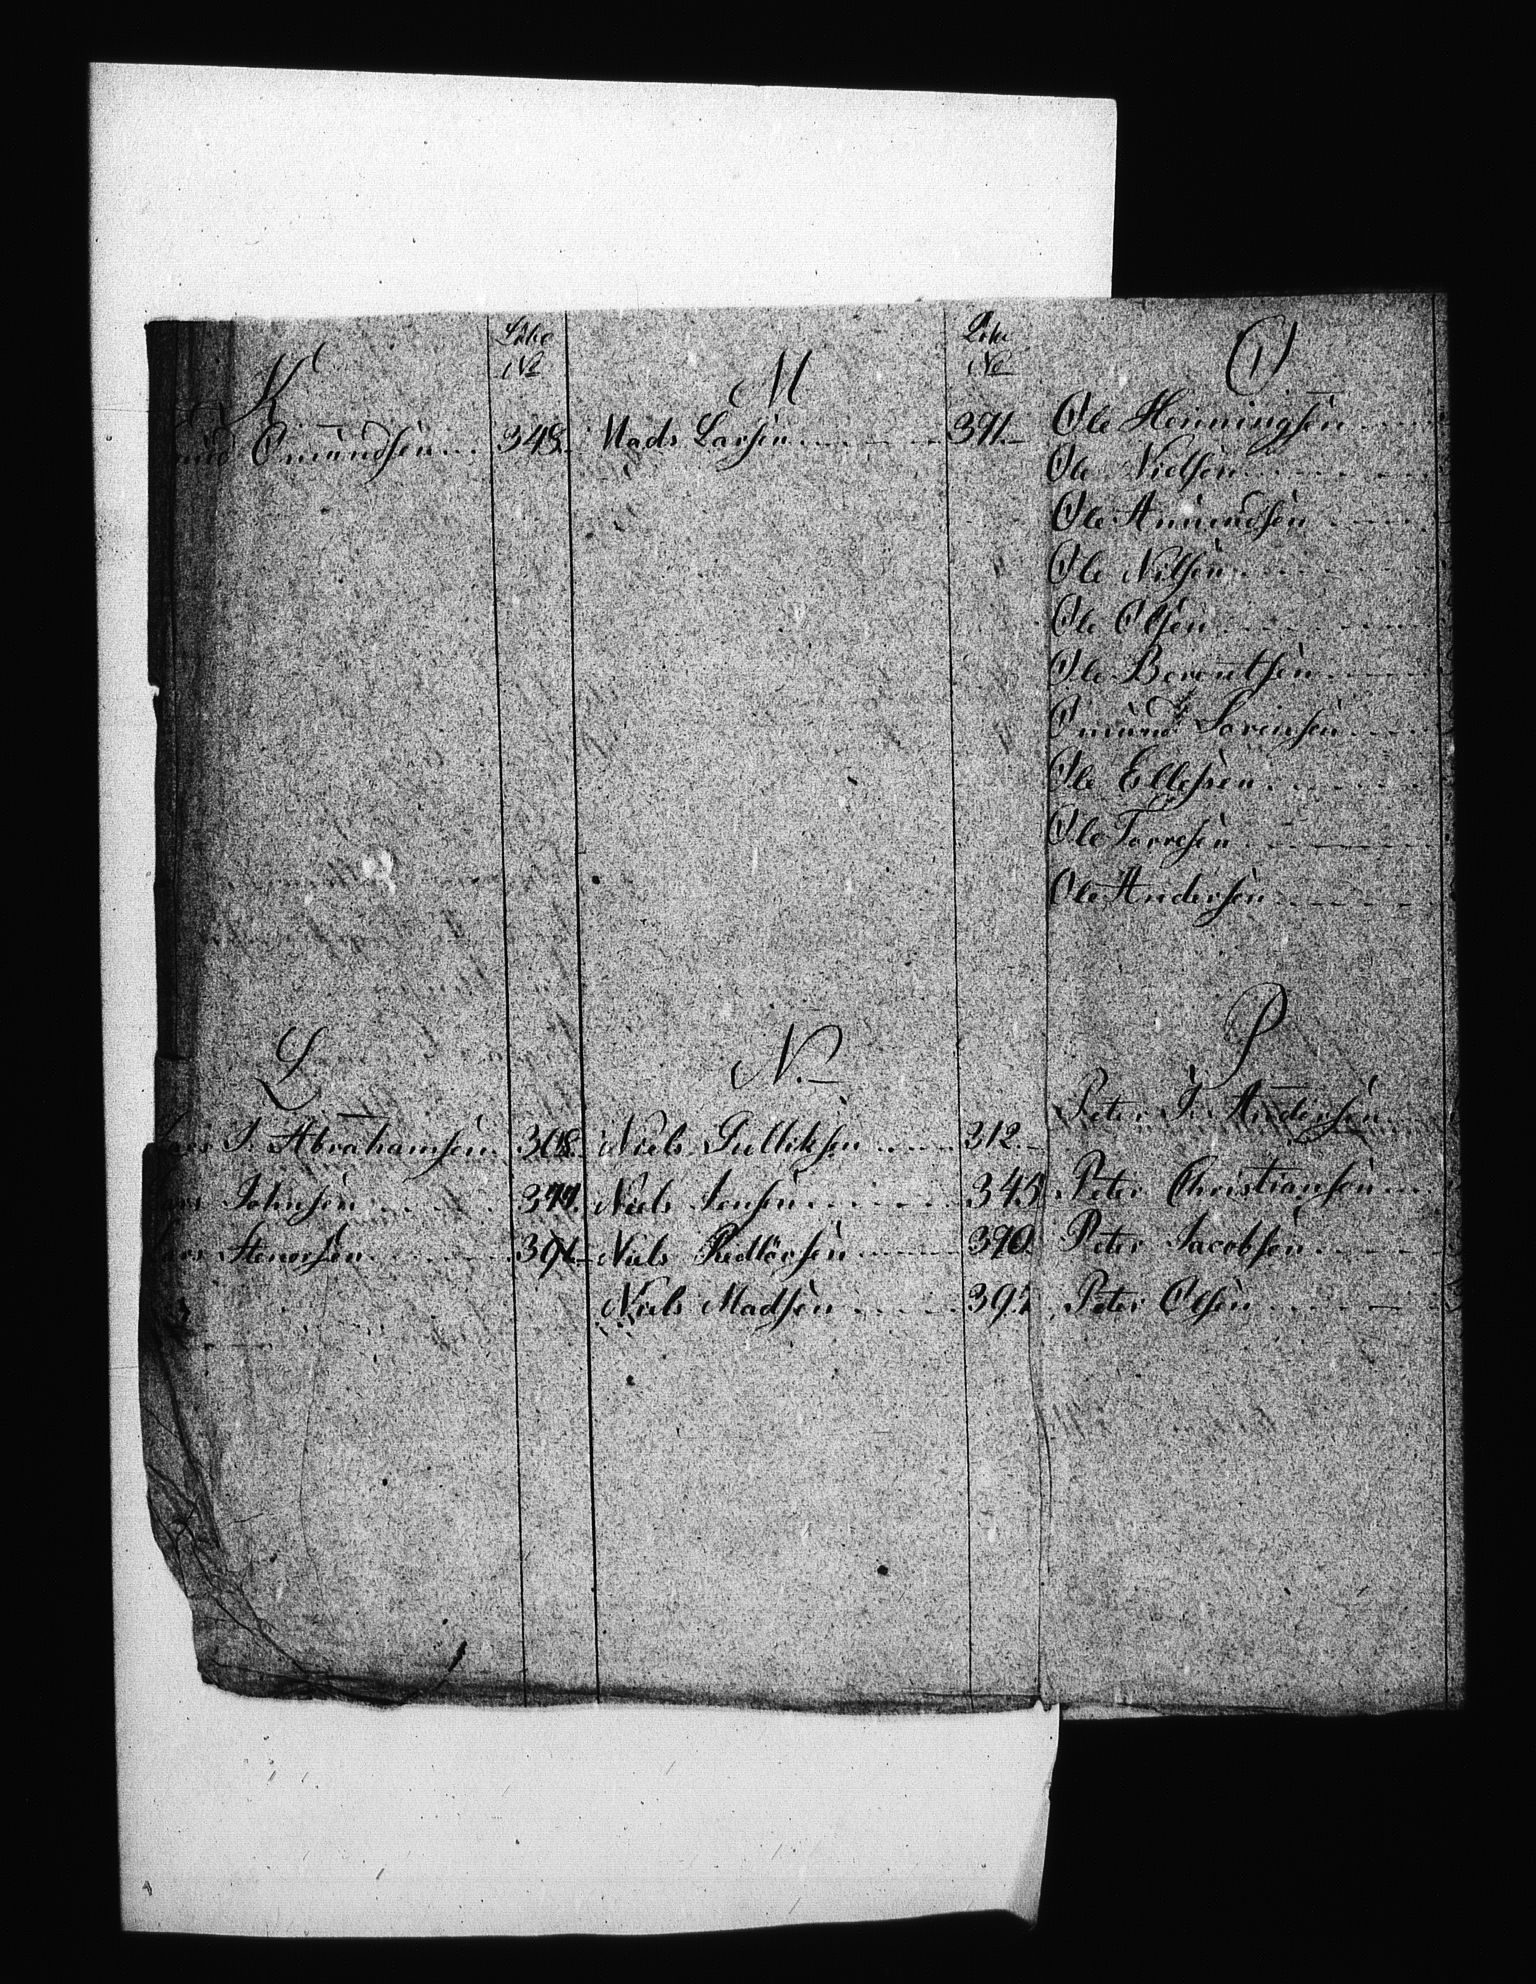 K
Libo No
Omundsen 348.
L
J. Abrahamsen 368.
Johnsen
Lars Stenersen
M
No
Mads Larsen 391.
N.
Niels Gulliksen 312.
Niels Jensen 345
Niels 390.
Niels Madsen 397
O
Ole Henningsen
Ole Nielsen
Ole Amundsen
Ole Nilsen
Ole Olsen
Ole Berentsen
Omund Sørensen
Ole Ellefsen
Ole Torresen
Ole Andersen
P
Peter Andersen
Peter Christiansen
Peter Jacobsen
Peter Olsen